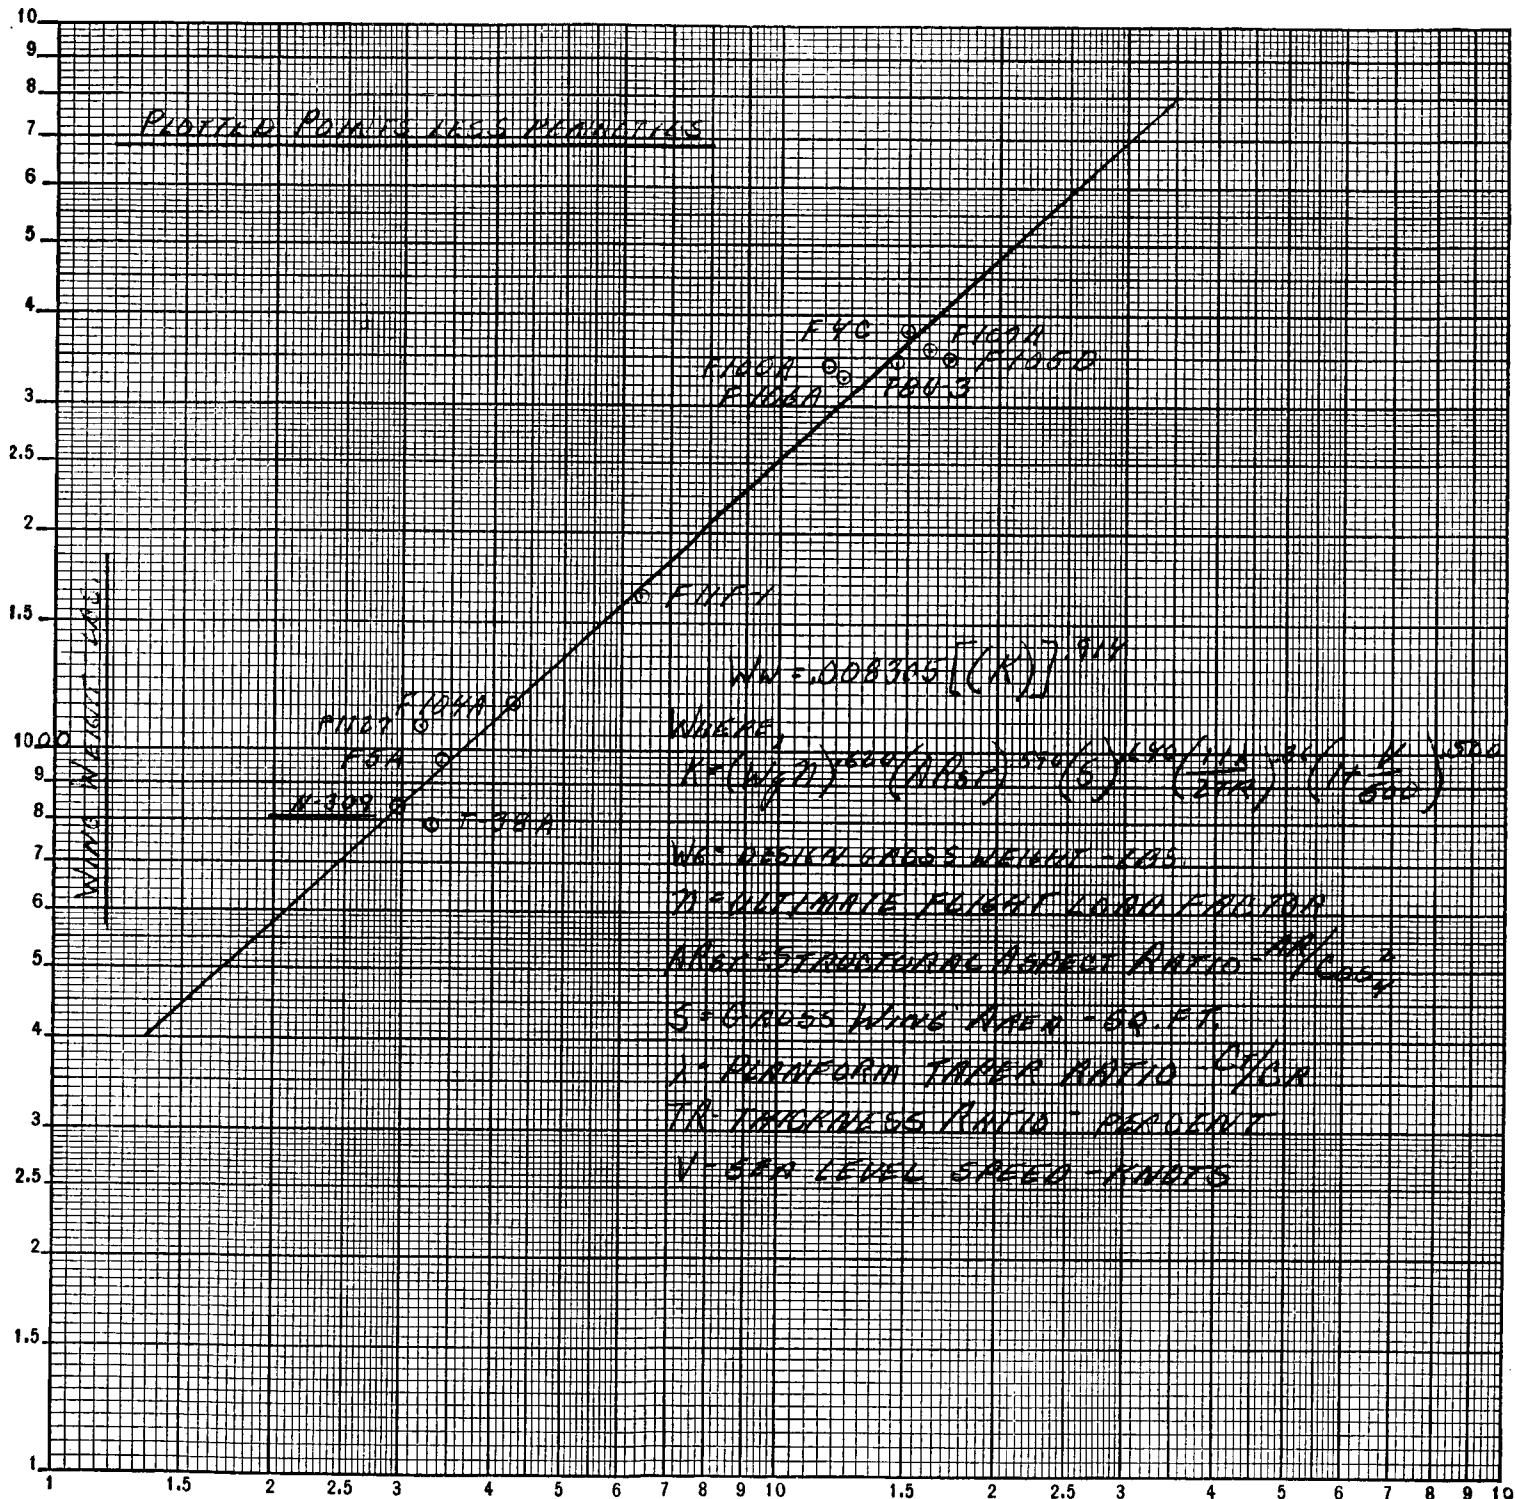 10
9
8
7
6
5
4
3
2.5
2
1.5
1000
9
8
7
6
5
4
3
2.5
2
1.5
1
PLOTTED POINTS LESS PENALTIES
F4C
F100A
F106A
F105D
F11F-1
F104A
P1127
F5A
N-309
T-38A
WING WEIGHT LBS.
Ww = .008305 [(K)] .914
WHERE,
WG = DESIGN GROSS WEIGHT - LBS.
n = ULTIMATE FLIGHT LOAD FACTOR
ARST = STRUCTURAL ASPECT RATIO - AR/COS²
S = GROSS WING AREA - SQ. FT.
λ = PLANFORM TAPER RATIO - CT/CR
TR - THICKNESS RATIO - PERCENT
V - SEA LEVEL SPEED - KNOTS
1 1.5 2 2.5 3 4 5 6 7 8 9 10 1.5 2 2.5 3 4 5 6 7 8 9 10